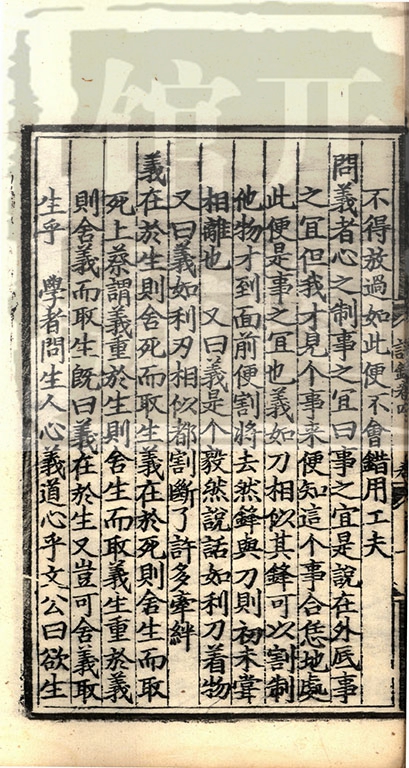 不得放過如此便不會錯用工夫
問義者心之制事之宜曰事之宜是說在外底事
之宜但我才見个事来便知這个事合恁地處
此便是事之宜也義如刀相似其鋒可以割制
他物才到面前便割將去然鋒與刀則初未甞
相離也　又曰義是个毅然說話如利刀着物
又曰義如利刃相似都割斷了許多牽絆
義在於生則舍死而取生義在於死則舍生而取
死上蔡謂義重於生則舍生而取義生重於義
則舍義而取生旣曰義在於生又豈可舍義取
生乎　學者問生人心義道心乎文公曰欲生